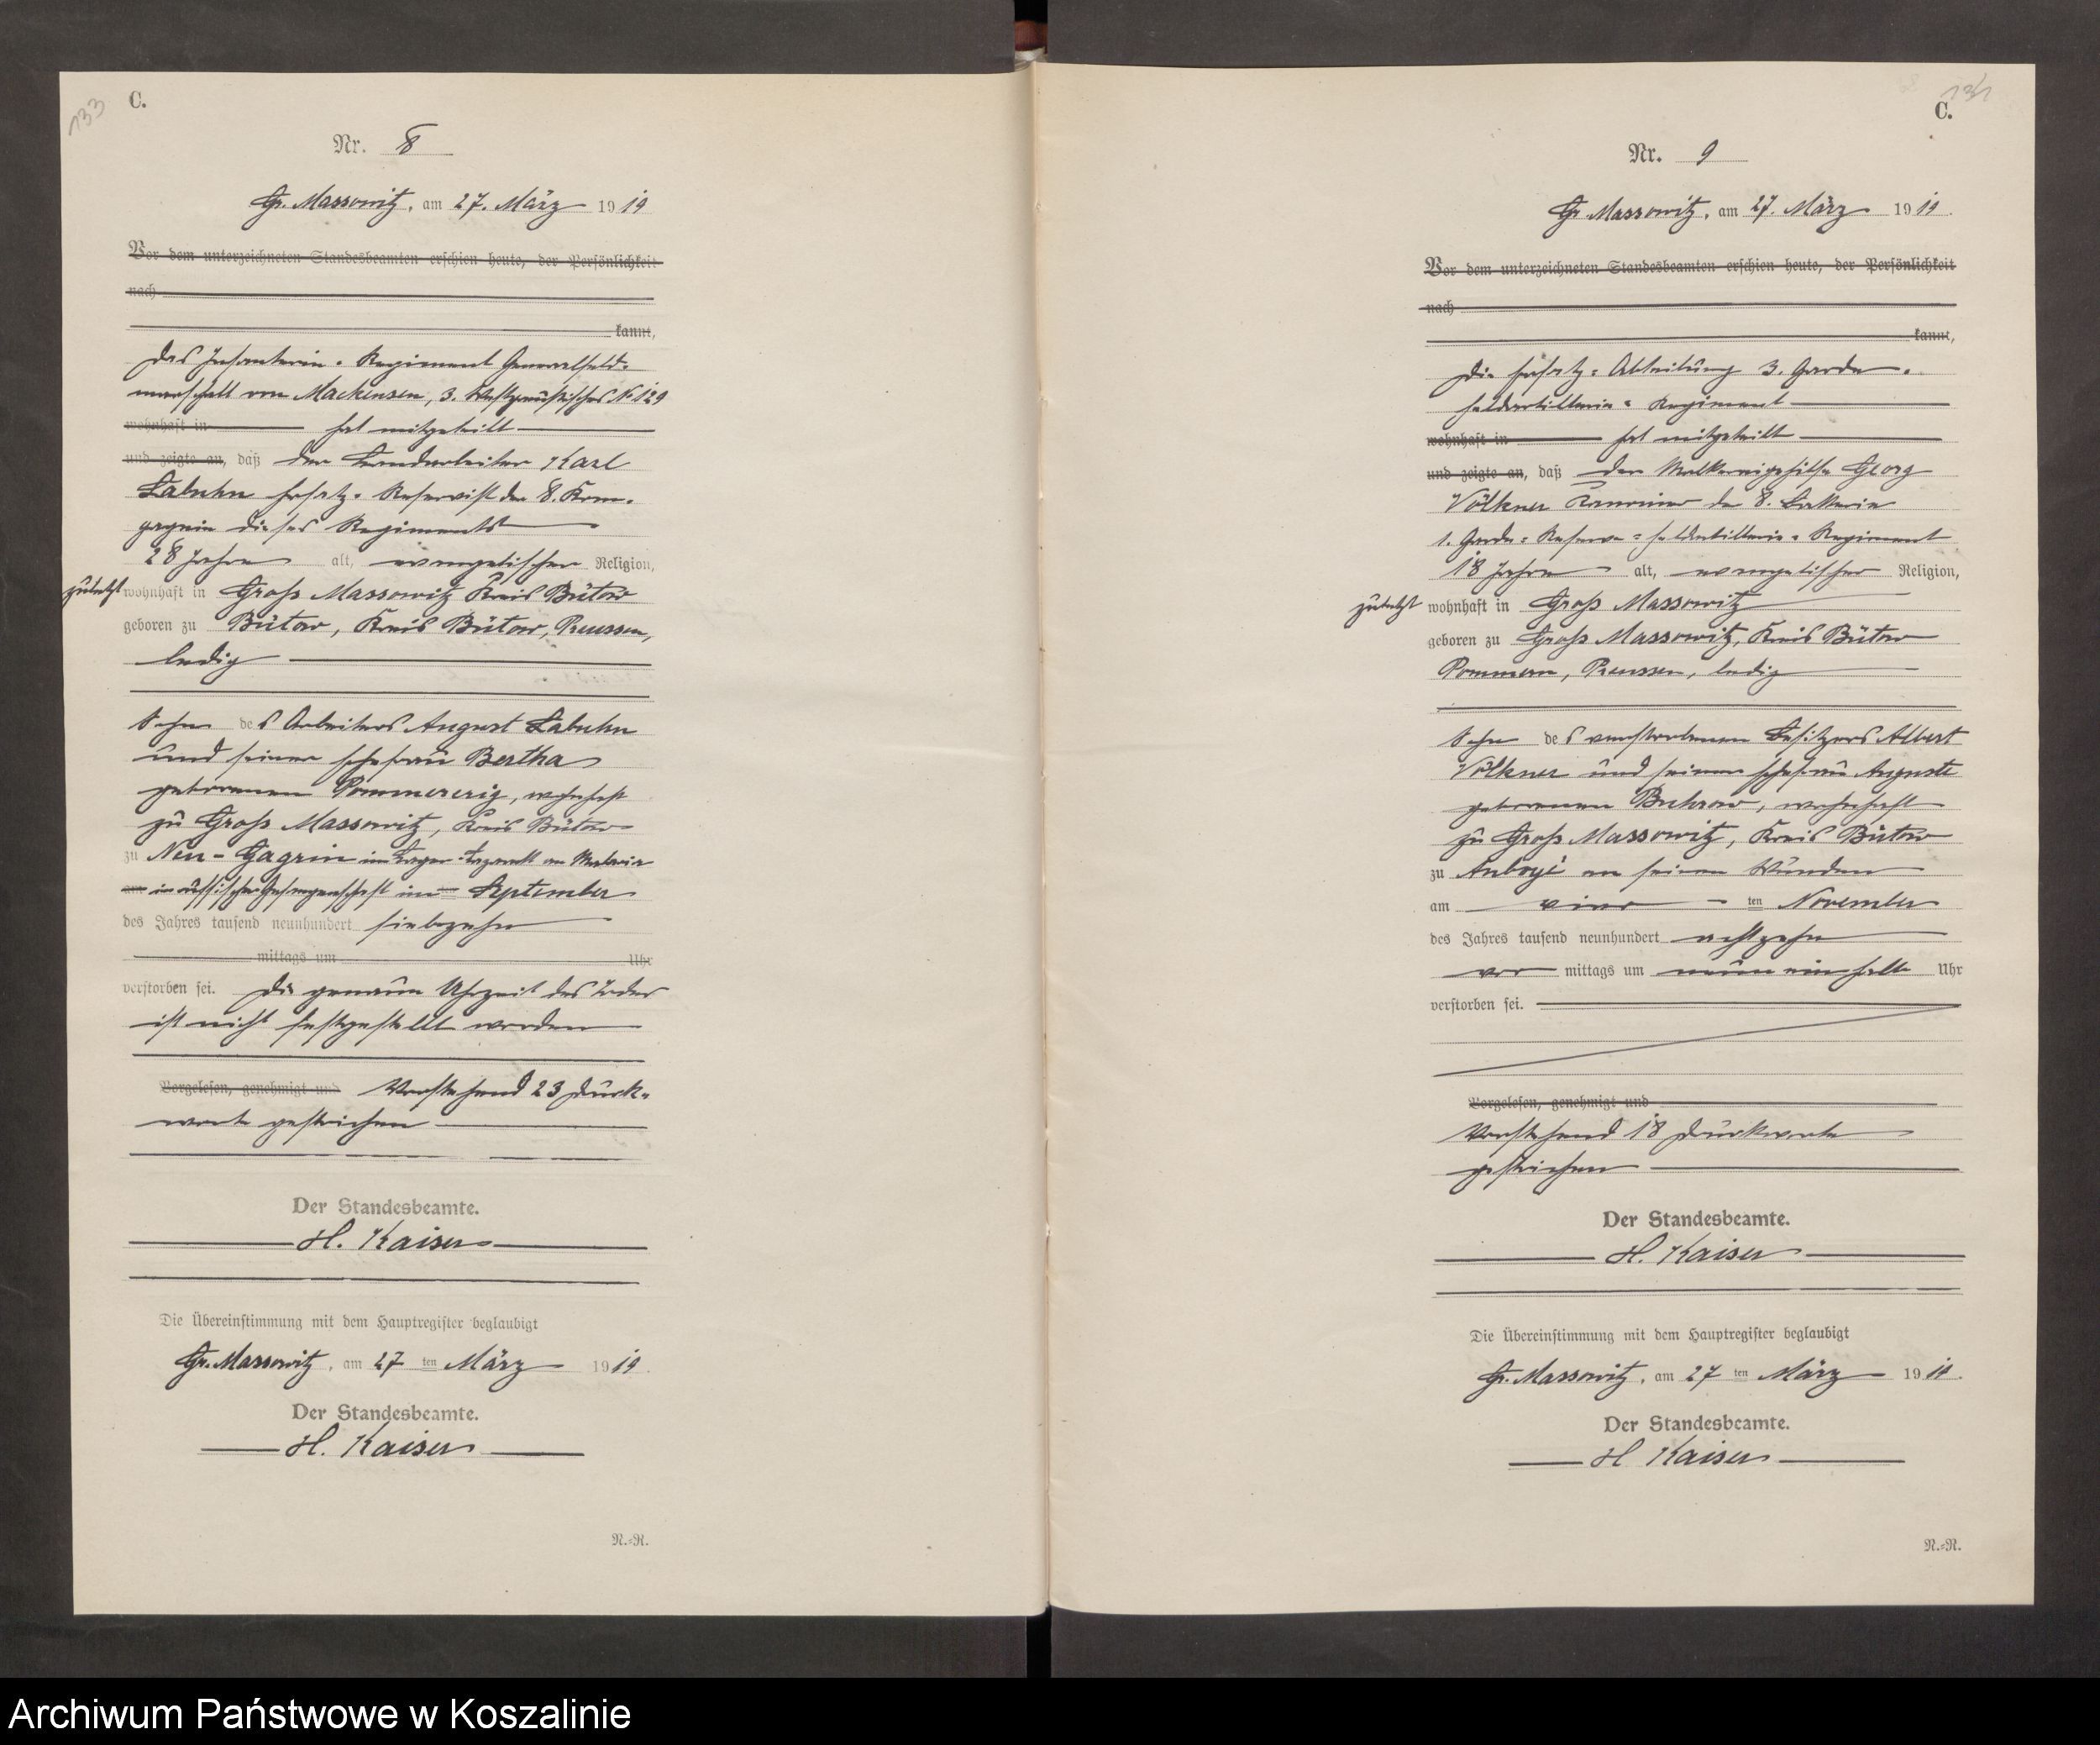 133
C.
Nr. 8
Gr. Massowitz, am 27. März 1919
Vor dem unterzeichneten Standesbeamten erschien heute, der Persönlichkeit
nach
kannt,
Das Infanterie-Regiment Generalfeld-
marschall von Mackensen, 3. Westpreußisches No 129
wohnhaft in hat mitgeteilt
und zeigte an, daß der Landarbeiter Karl
Labuhn Ersatz-Reservist der 8. Kom-
pagnie dieses Regiments
28 Jahre alt, evangelischer Religion,
zuletzt wohnhaft in Groß Massowitz Kreis Bütow
geboren zu Bütow, Kreis Bütow, Preussen,
ledig
Sohn des Arbeiters August Labuhn
und seiner Ehefrau Bertha
geborenen Pommerenig, wohnhaft
zu Groß Massowitz, Kreis Bütow
zu Neu-Gagrin im Lager-Lazarett an Malaria
in russischer Gefangenschaft im September
des Jahres tausend neunhundert siebzehn
mittags um Uhr
verstorben sei. Die genaue Uhrzeit des Todes
ist nicht festgestellt worden
Vorgelesen, genehmigt und Vorstehend 23 Druck-
worte gestrichen
Der Standesbeamte.
H. Kaiser
Die Übereinstimmung mit dem Hauptregister beglaubigt
Gr. Massowitz, am 27 ten März 1919.
Der Standesbeamte.
H. Kaiser
N.-R.
C.
Nr. 9
Gr. Massowitz, am 27. März 1919.
Vor dem unterzeichneten Standesbeamten erschien heute, der Persönlichkeit
nach
kannt,
Die Ersatz-Abteilung 3. Garde-
Feldartillerie-Regiment
wohnhaft in hat mitgeteilt
und zeigte an, daß der Molkereigehilfe Georg
Völkner Kanonier der 8. Batterie
1. Garde-Reserve-Feldartillerie-Regiment
18 Jahre alt, evangelischer Religion,
zuletzt wohnhaft in Groß Massowitz
geboren zu Groß Massowitz, Kreis Bütow
Pommern, Preussen, ledig
Sohn des verstorbenen Besitzers Albert
Völkner und seiner Ehefrau Auguste
geborenen Buhrow, wohnhaft
zu Groß Massowitz, Kreis Bütow
zu Anboyé an seinen Wunden
am vier ten November
des Jahres tausend neunhundert achtzehn
vor mittags um neun einhalb Uhr
verstorben sei.
Vorgelesen, genehmigt und
Vorstehend 18 Druckworte
gestrichen
Der Standesbeamte.
H. Kaiser
Die Übereinstimmung mit dem Hauptregister beglaubigt
Gr. Massowitz, am 27 ten März 1919.
Der Standesbeamte.
H Kaiser
N.-R.
Archiwum Państwowe w Koszalinie